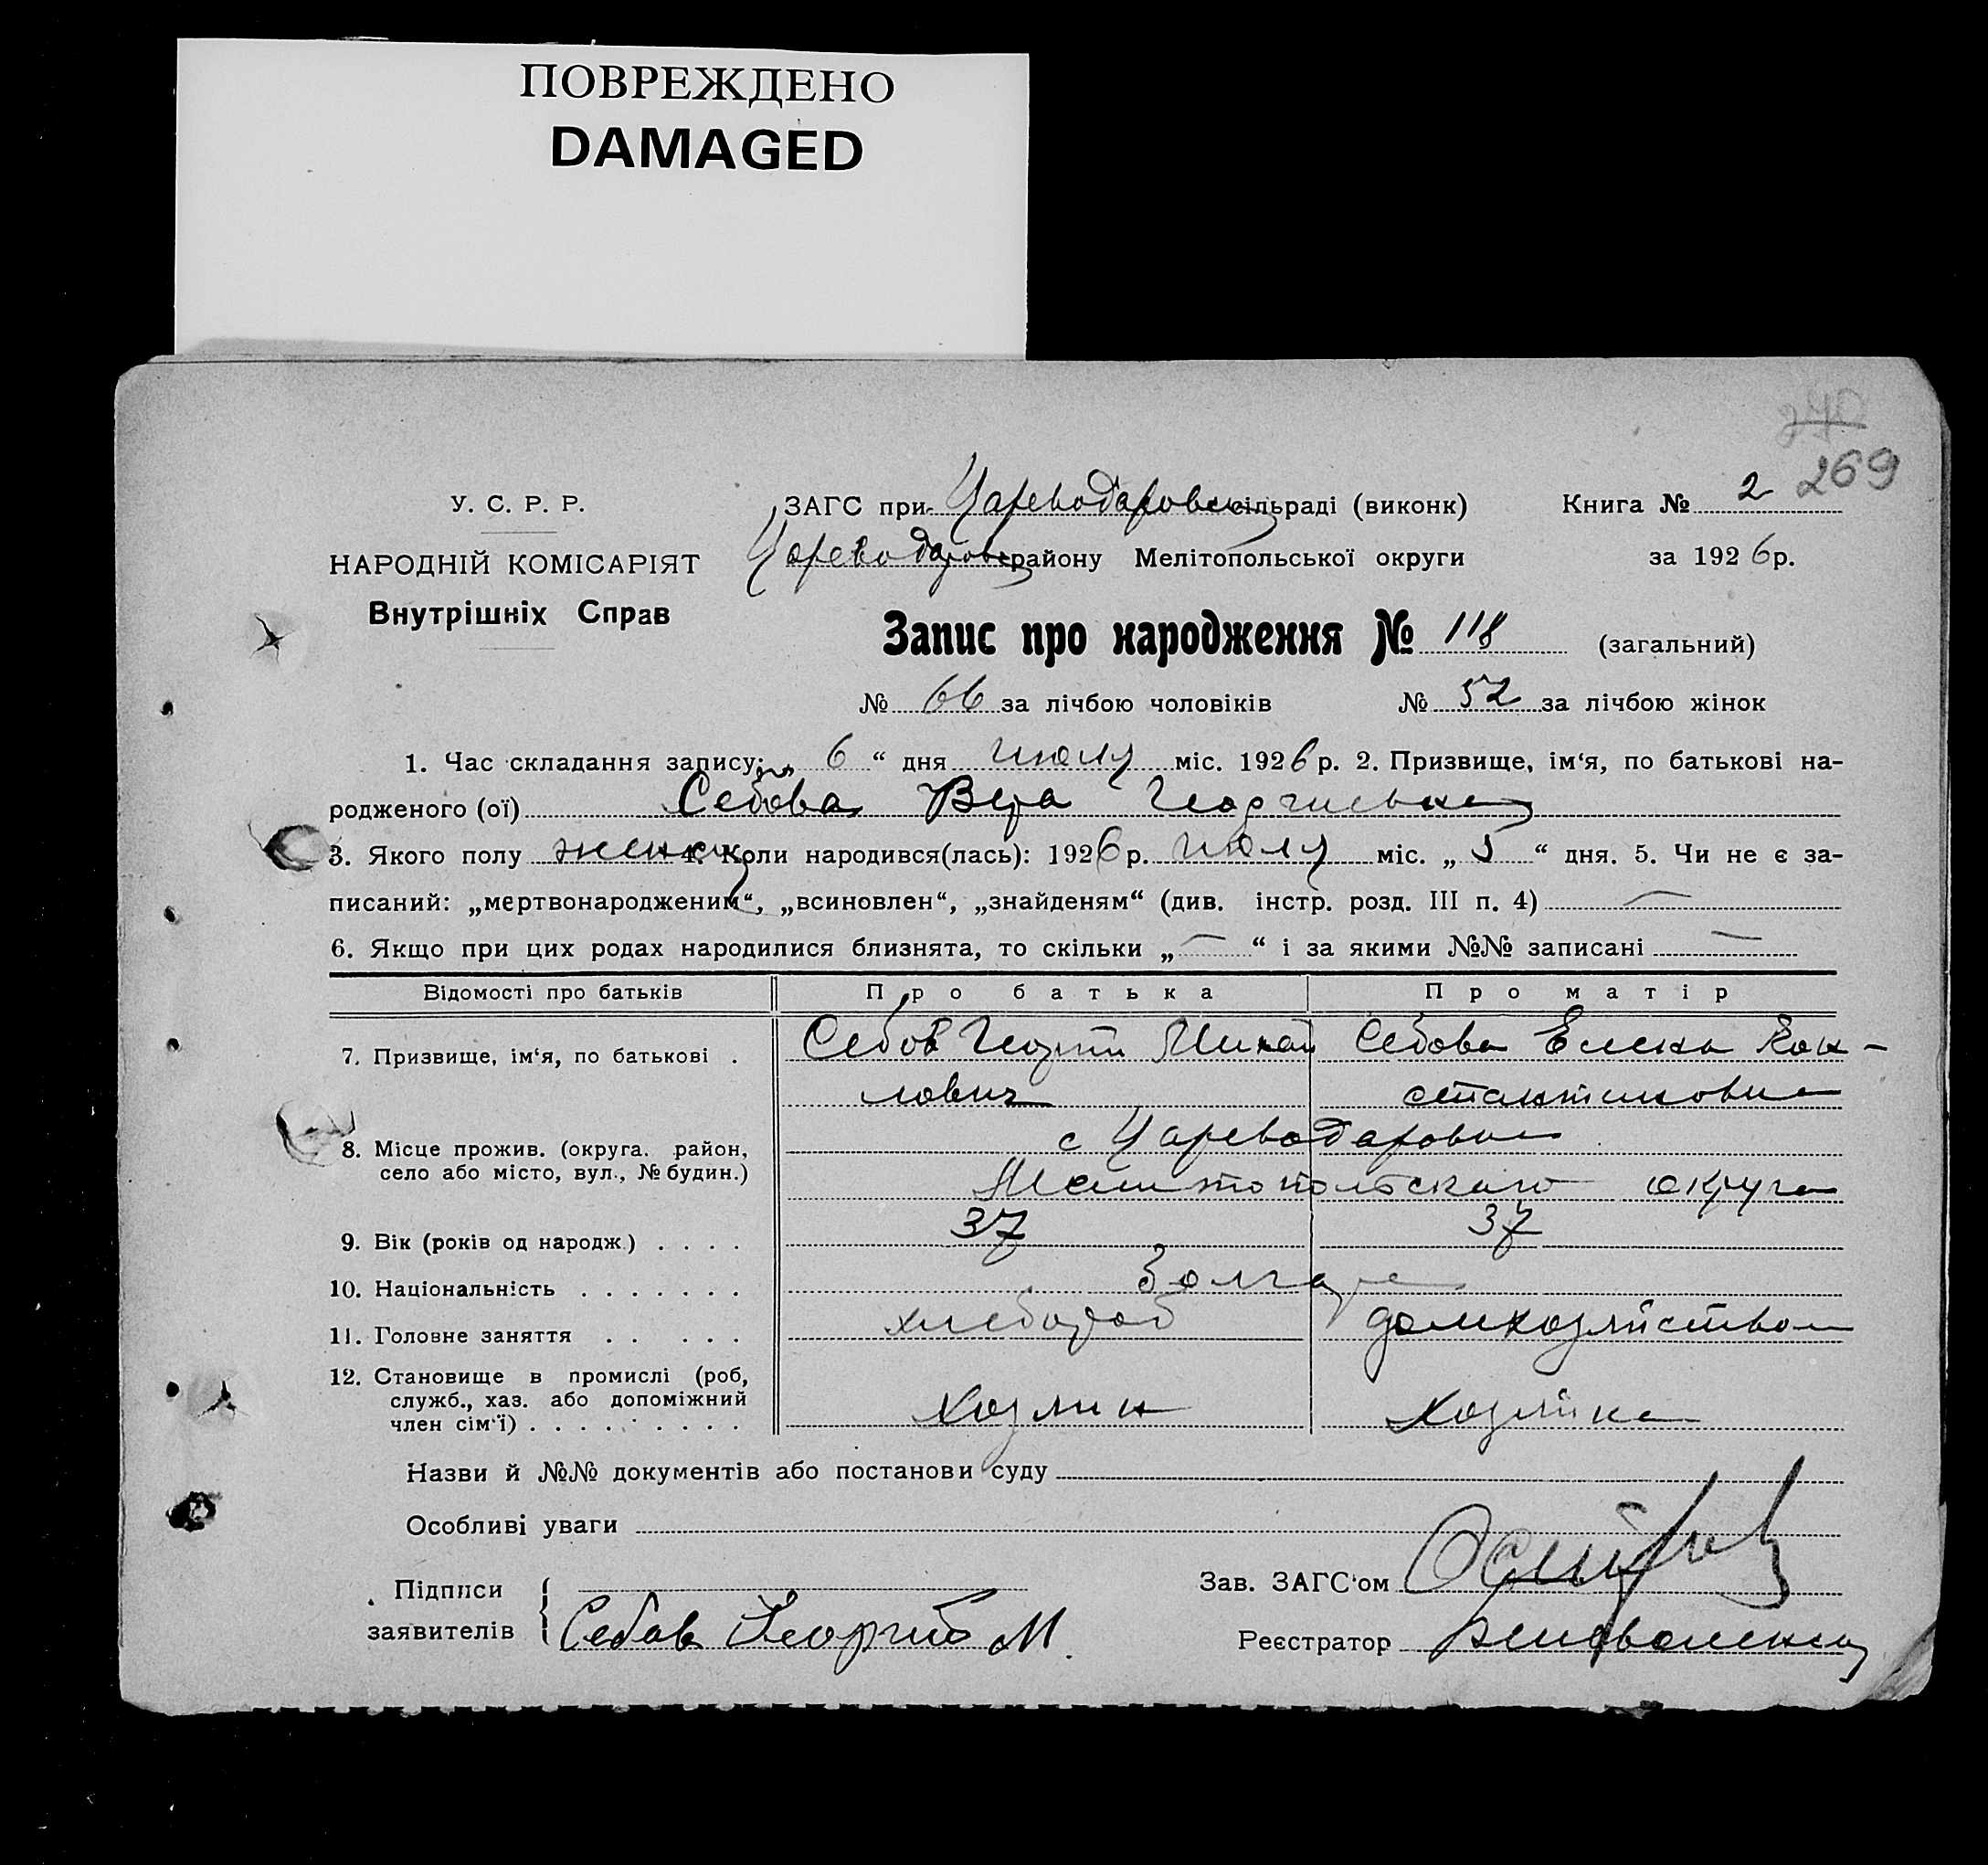 ПОВРЕЖДЕНО
DAMAGED
270
269
У. С. Р. Р.
НАРОДНІЙ КОМІСАРІЯТ
Внутрішніх Справ
ЗАГС при Цареводаровск сільраді (виконк) Книга № 2
Цареводаровск району Мелітопольської округи за 1926 р.
Запис про народження № 118 (загальний)
№ 66 за лічбою чоловіків № 52 за лічбою жінок
1. Час складання запису: „ 6 “ дня июля міс. 1926 р. 2. Призвище, ім‘я, по батькові на-
родженого (ої) Себова Вера Георгиевна
3. Якого полу женск 4. Коли народився(лась): 1926 р. июля міс. „ 5 “ дня. 5. Чи не є за-
писаний: „мертвонародженим“, „всиновлен“, „знайденям“ (див. інстр. розд. III п. 4) —
6. Якщо при цих родах народилися близнята, то скільки „ — “ і за якими №№ записані —
Відомості про батьків Про батька Про матір
7. Призвище, ім‘я, по батькові . Себов Георгий Михай Себова Елена Кон-
лович стантиновна
8. Місце прожив. (округа. район, с Цареводаровка
село або місто, вул., № будин.) Мелитопольского округа
9. Вік (років од народж.) . . . . 37 37
10. Національність . . . . . . . Болгаре
11. Головне заняття . . . . . хлебороб домхозяйством
12. Становище в промислі (роб,
служб., хаз. або допоміжний Хозяин Хозяйка
член сім‘ї) . . . . . . . . .
Назви й №№ документів або постанови суду
Особливі уваги
Підписи
заявителів { Себов Георгий М.
Зав. ЗАГС‘ом
Реєстратор